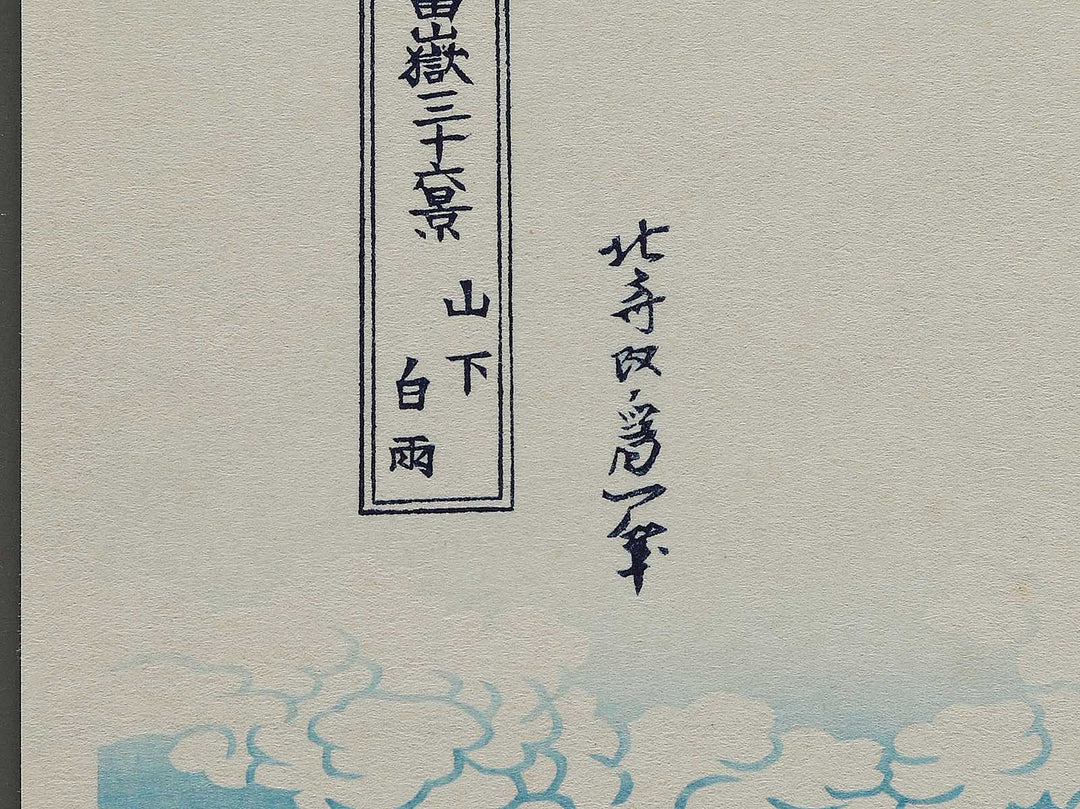 冨嶽三十六景
山下
白雨
北斎改爲一筆